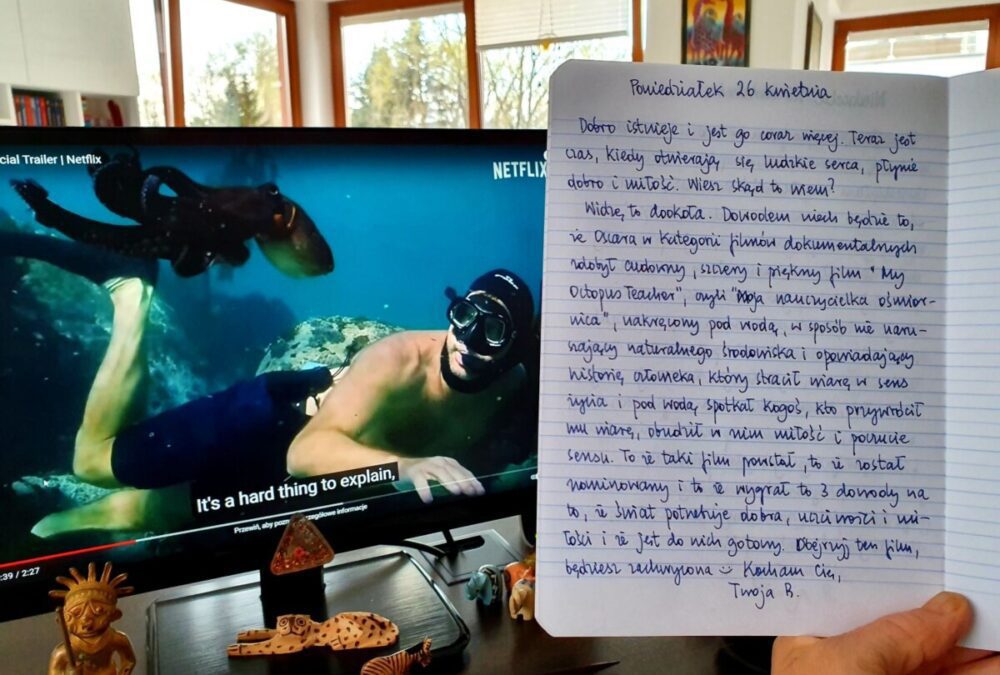 cial Trailer | Netflix
NETFLIX
It's a hard thing to explain,
Przewiń, aby poznać szczegółowe informacje
:39 / 2:27
Poniedziałek 26 kwietnia
Dobro istnieje i jest go coraz więcej. Teraz jest
czas, kiedy otwierają się ludzkie serca, płynie
dobro i miłość. Wiesz skąd to wiem?
Widzę to dookoła. Dowodem niech będzie to,
że Oscara w kategorii filmów dokumentalnych
zdobył cudowny, szczery i piękny film "My
Octopus Teacher", czyli "Moja nauczycielka ośmior-
nica", nakręcony pod wodą, w sposób nie naru-
szający naturalnego środowiska i opowiadający
historię człowieka, który stracił wiarę w sens
życia i pod wodą spotkał kogoś, kto przywrócił
mu wiarę, obudził w nim miłość i poczucie
sensu. To że taki film powstał, to że został
nominowany i to że wygrał to 3 dowody na
to, że świat potrzebuje dobra, uczciwości i mi-
łości i że jest do nich gotowy. Obejrzyj ten film,
będziesz zachwycona :) Kocham Cię,
Twoja B.